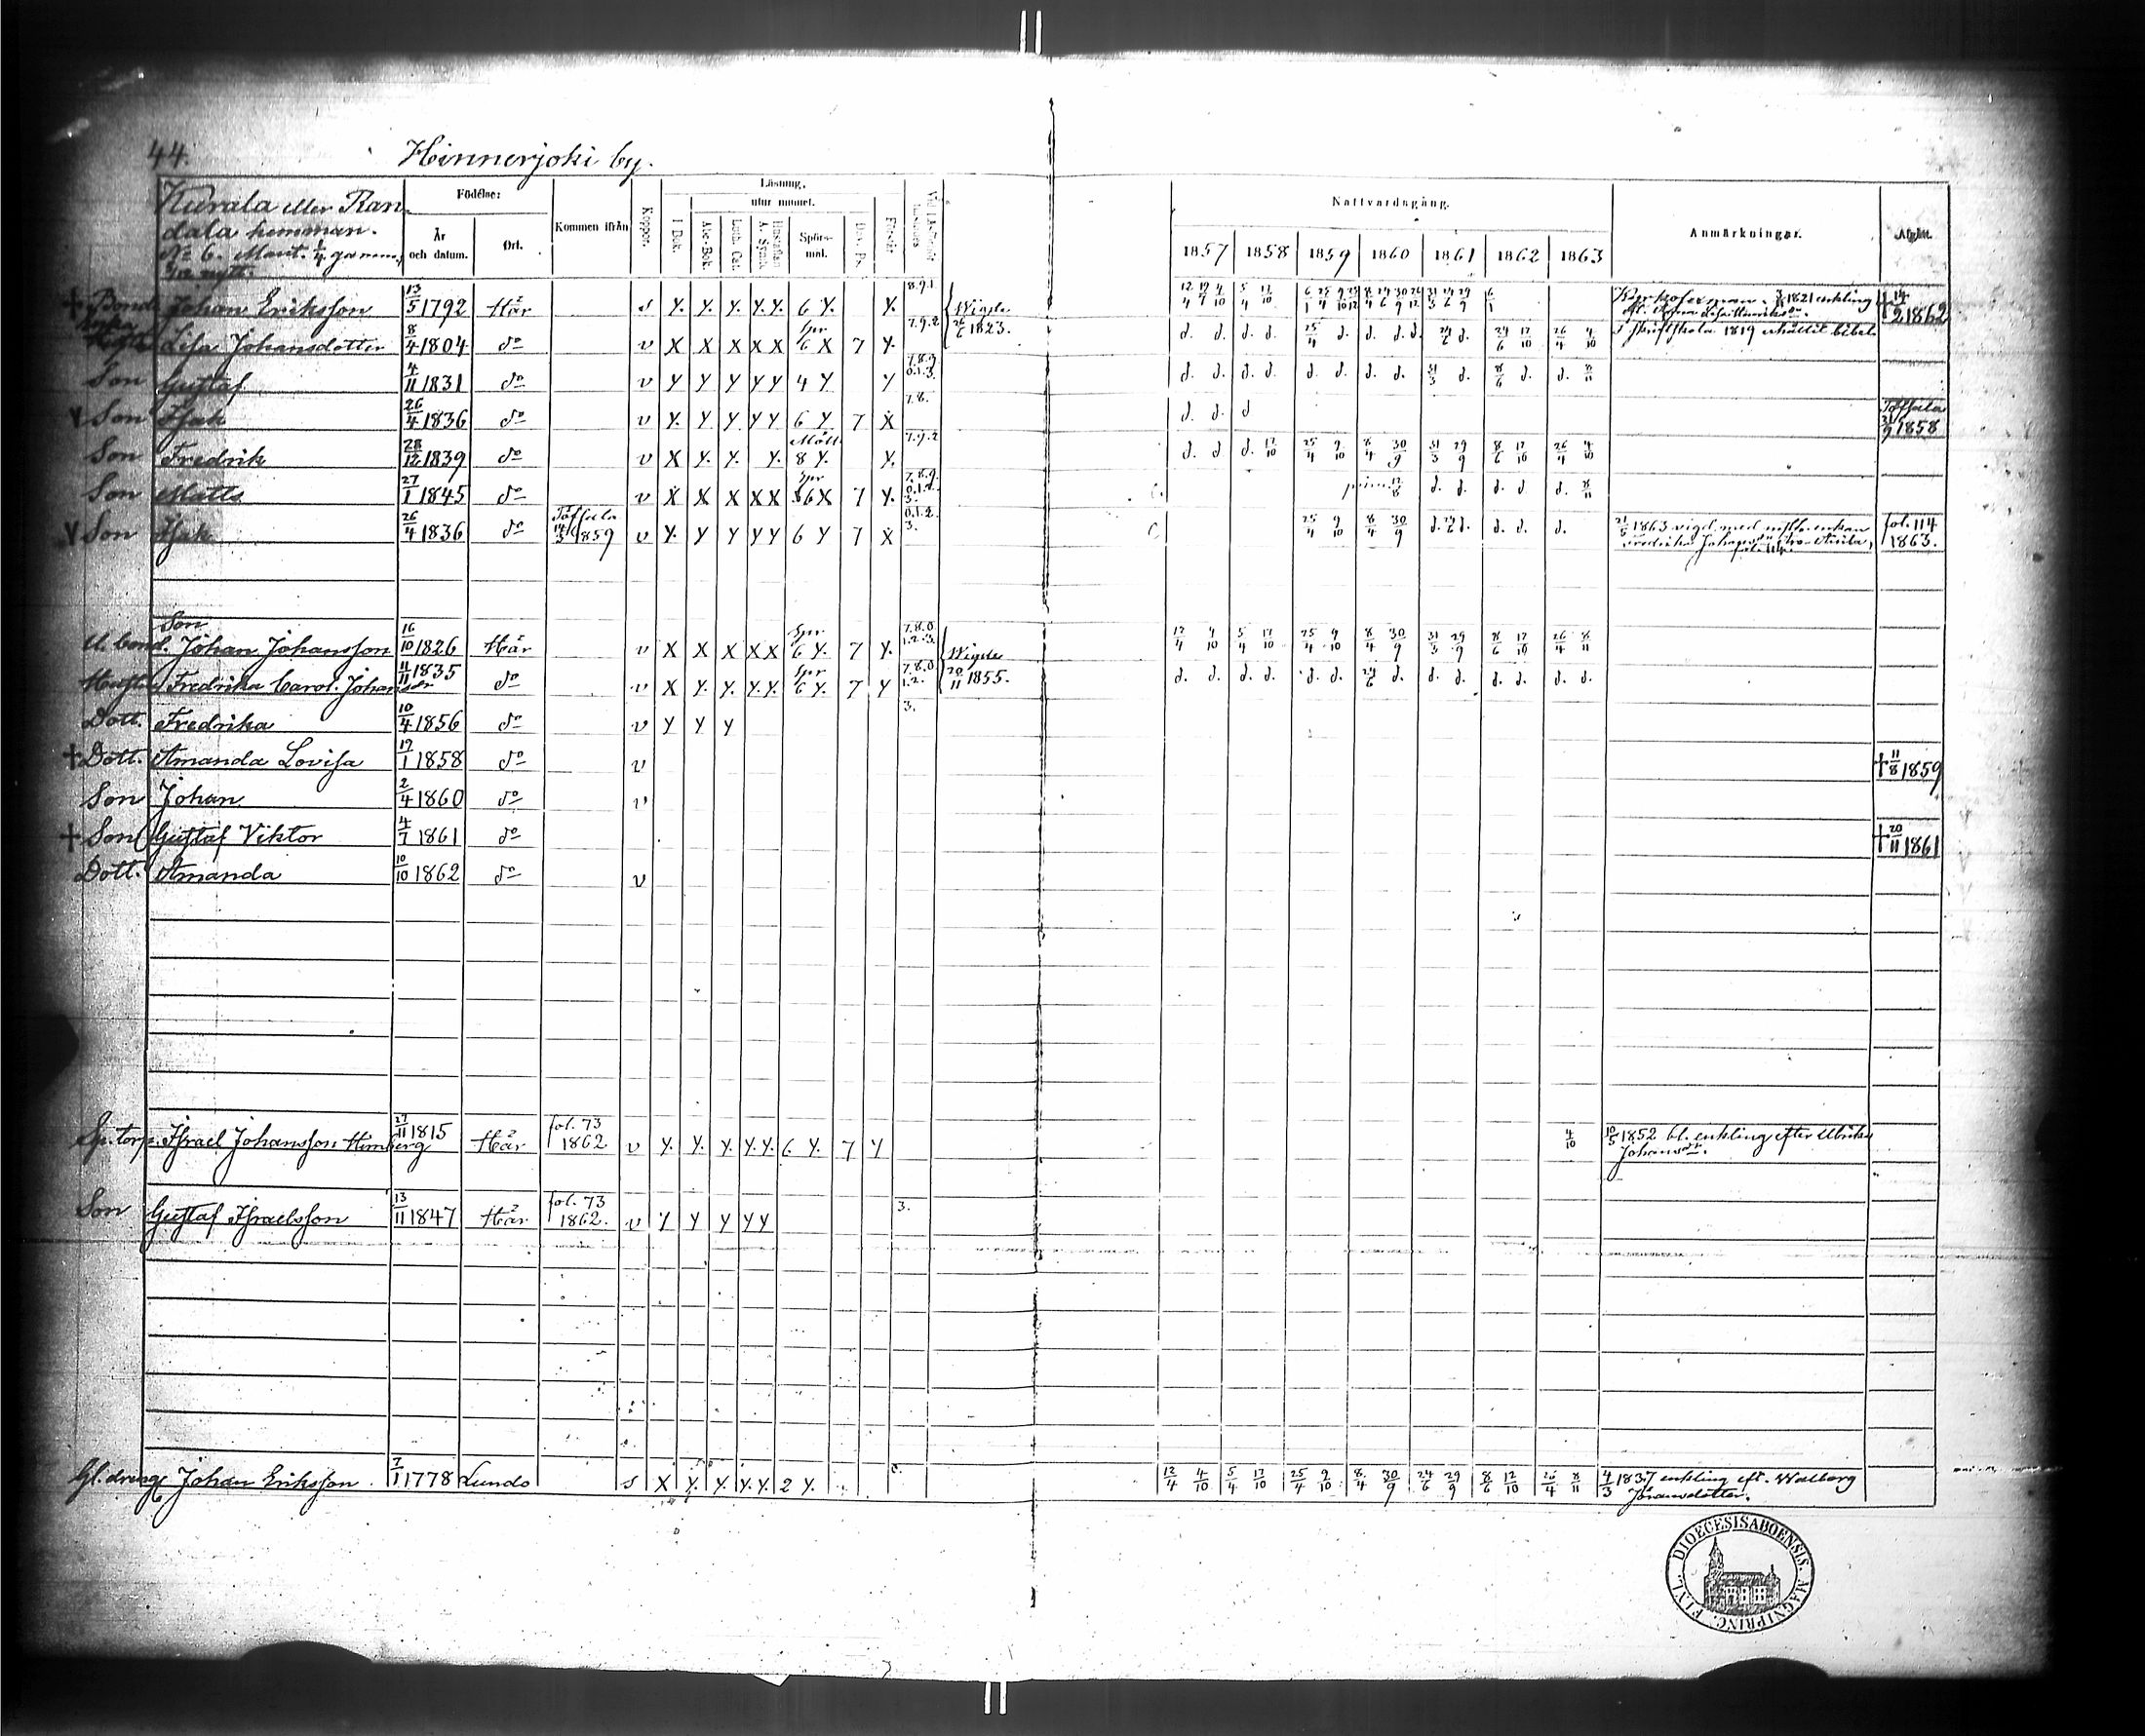 44.
Hinnerjoki by.
Kurala eller Ran-
dala hemman.
No 6. Mant. 1/4 gamm.,
nytt.
Födelse:
År och datum.
Ort.
Kommen ifrån
Koppor.
Läsning.
utur minnet.
I Bok.
Abc-Bok.
Luth. Cat.
Hustaflan A. Symb.
Spörs-mål.
Dav. Ps.
Förstår
Nattvardsgång.
1857 1858 1859 1860 1861 1862 1863
Anmärkningar.
Afgått.
† Bond. Johan Eriksson 13/5 1792 Här s y. y. y. y. y. 6 y. y. 8.9.1. Wigde 26/6 1823. 12/4 4/10 5/4 17/10 6/1 25/4 9/10 8/4 24/6 30/9 31/3 24/6 29/9 6/1 3/11 1821 enkling † 14/2 1862
Lisa Johansdotter 8/4 1804 do v X X X X X Spr 6 X 7 y. 7.9.2 d. d. d. d. 25/4 d. d. d. d. 24/6 d. 24/6 12/10 26/4 4/10 I Skriftskola 1819 erhållit bibel
Son Gustaf 4/11 1831 do v y y y y y 4 y y 7.8.9. 0.1.3. d. d. d. d. d. d. d. d. 31/3 d. 8/6 d. d. 8/11
Son Isak 26/4 1836 do v y. y y y y 6 y 7 X 7.8. d. d. d 1858
Son Fredrik 28/12 1839 do v X y. y. y. 8 y. y. 7.9.2 d. d d. 17/10 25/4 9/10 8/4 30/9 31/3 29/9 8/6 12/10 26/4 4/10
Son Matts 27/1 1845 do v X X X X X Spr 6 X 7 y. 7.8.9. 0.1.2. 3. d. d. d. d. d. 8/11
Son Isak 26/4 1836 do 14/3 1859 v y. y y y y 6 y 7 X 0.1.2. 3. 25/4 9/10 8/4 30/9 d. 24/6 d. d. d. d. 21/6 1863 vigd med enkan fol. 114
Fredrika fol. 114. 1863.
Son
U. bond. Johan Johansson 16/10 1826 Här v X X X X X Spr 6 y. 7 y. 7.8.0. 1.2.3. Wigde 20/11 1855. 12/4 4/10 5/4 17/10 25/4 9/10 8/4 30/9 31/3 29/9 8/6 12/10 26/4 8/11
Hustru Fredrika Carol. Johansdr 11/11 1835 do v X y. y. y. y. Spr 6 y. 7 y 7.8.0 1.2. 3. d. d. d. d. d. d. 24/6 d. d. d. d. d. d. d.
Dott. Fredrika 10/4 1856 do v y y y
† Dott. Amanda Lovisa 17/1 1858 do v † 11/8 1859
Son Johan 2/4 1860 do v
† Son Gustaf Viktor 4/7 1861 do † 20/11 1861
Dott. Amanda 10/10 1862 do v
Sp. torp. Israel Johansson Himberg 27/11 1815 Här fol. 73 1862 v y. y. y. y. y. 6 y. 7 y 4/10 10/5 1852 bl. enkling efter Ulrika
Johansdr.
Son Gustaf Israelsson 13/11 1847 Här fol. 73 1862. v y y y y y 3.
Gl. dreng Johan Eriksson 7/1 1778 Lundo s X y. y. y. y. 2 y. 12/4 4/10 5/4 17/10 25/4 9/10 8/4 30/9 24/6 29/9 8/6 12/10 26/4 8/11 4/3 1837 enkling eft. Walborg
Johansdotter.
DIOECESIS ABOENSIS. MAGNI PRINC. FINL.